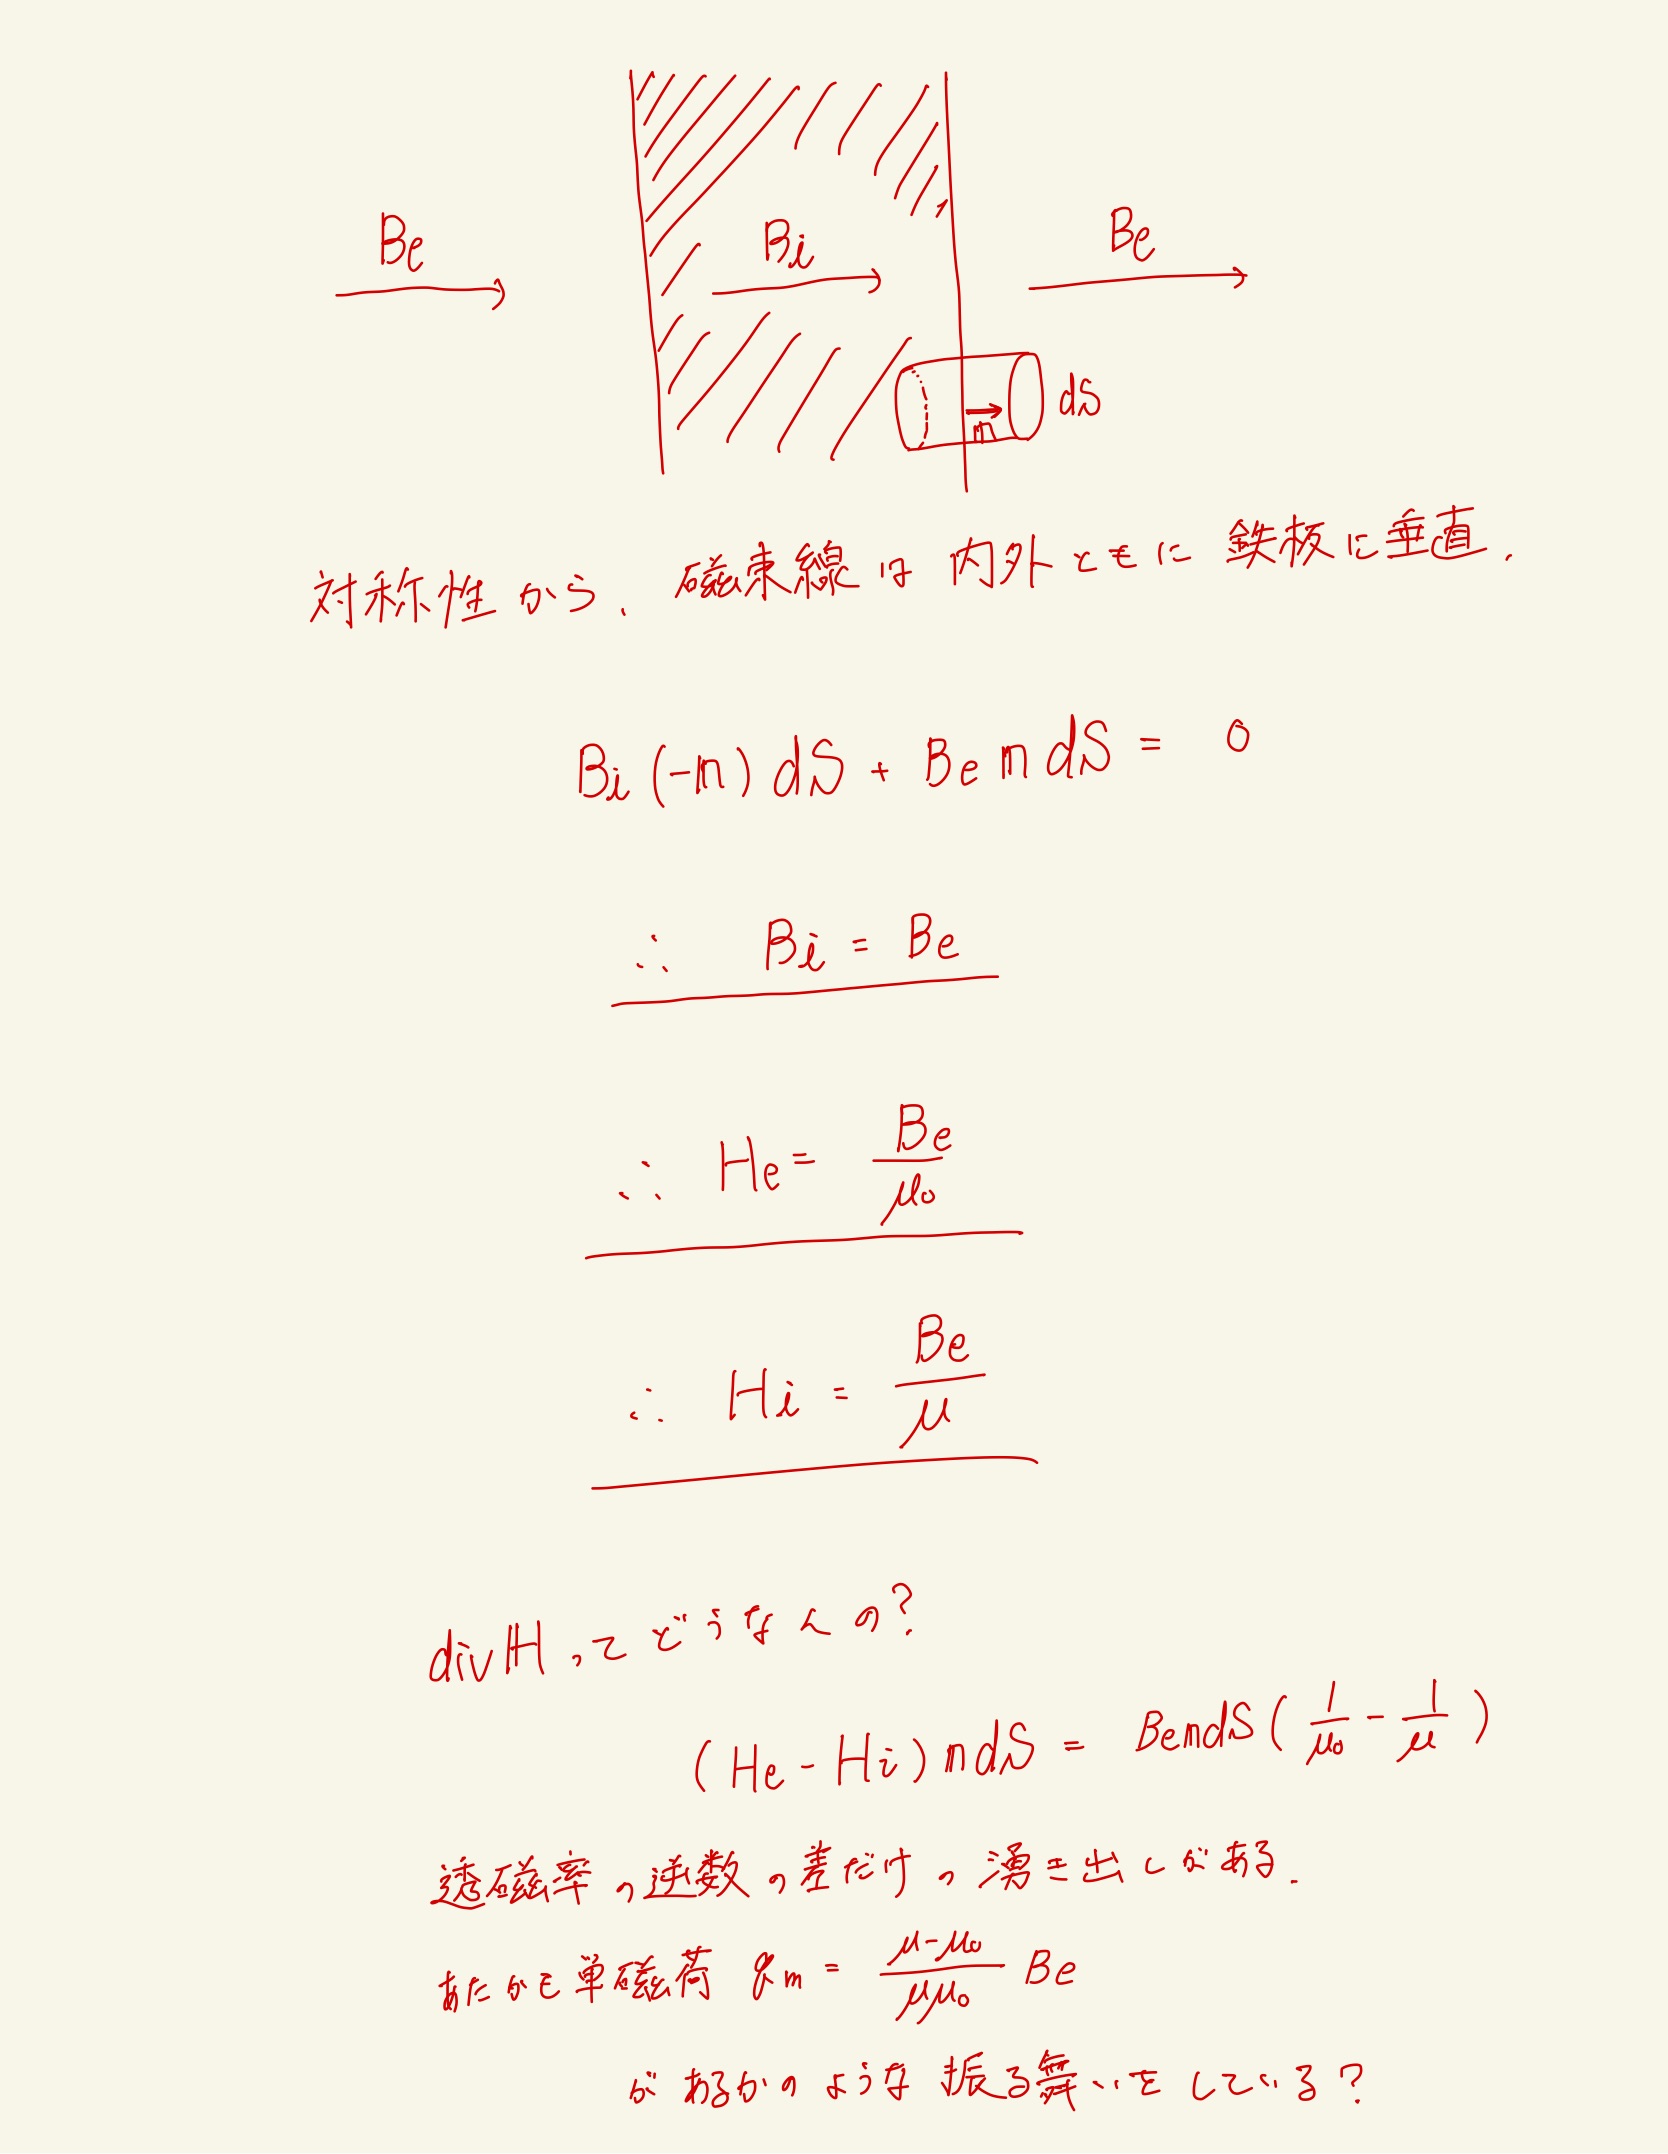 Be Bi Be
n dS
対称性から、磁束線は内外ともに鉄板に垂直.
Bi(-n)dS + Be n dS = 0
∴ Bi = Be
∴ He = Be/μ₀
∴ Hi = Be/μ
divHってどうなんの?
(He - Hi) n dS = Be n dS (1/μ₀ - 1/μ)
透磁率の逆数の差だけの湧き出しがある.
あたかも単磁荷 qm = (μ-μ₀)/(μμ₀) Be
があるかのような振る舞いをしている?